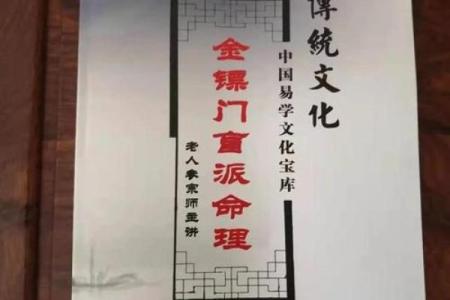 傳統文化
中国易学文化宝库
金镖门盲派命理
老人宗师主讲